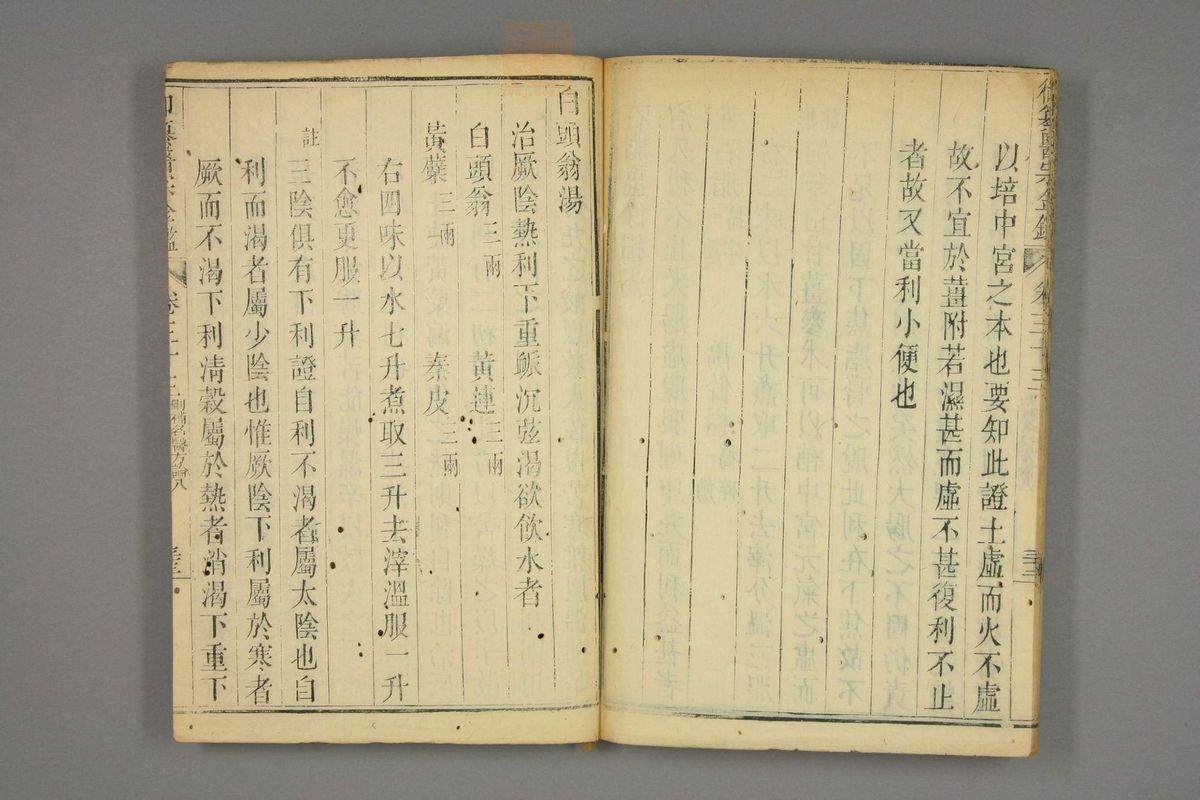 御纂醫宗金鑑 卷三十三
以培中宮之本也要知此證土虛而火不虛
故不宜於薑附若濕甚而虛不甚復利不止
者故又當利小便也
白頭翁湯
治厥陰熱利下重脈沉弦渴欲飲水者
白頭翁三兩 黃連三兩
黃蘗三兩 秦皮三兩
右四味以水七升煮取三升去滓溫服一升
不愈更服一升
註
三陰俱有下利證自利不渴者屬太陰也自
利而渴者屬少陰也惟厥陰下利屬於寒者
厥而不渴下利清穀屬於熱者消渴下重下
刪補名醫方論八